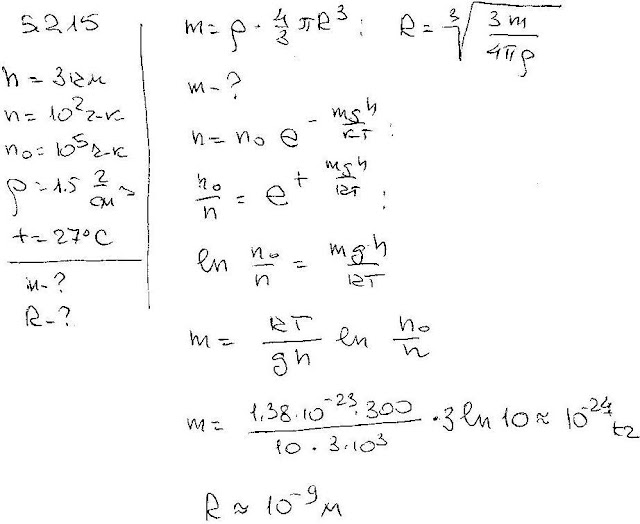 5.2.15
h = 3 км
n = 10² г-к
n₀ = 10⁵ г-к
ρ = 1.5 г/см³
t = 27°C
m - ?
R - ?
m = ρ · 4/3 πR³ ; R = ∛(3m / 4πρ)
m - ?
n = n₀ e^(- mgh/kT) ;
n₀/n = e^(+ mgh/kT) ;
ln n₀/n = mgh/kT
m = kT/gh ln n₀/n
m = 1.38·10⁻²³·300 / 10·3·10³ · 3 ln 10 ≈ 10⁻²⁴ кг
R ≈ 10⁻⁹ м